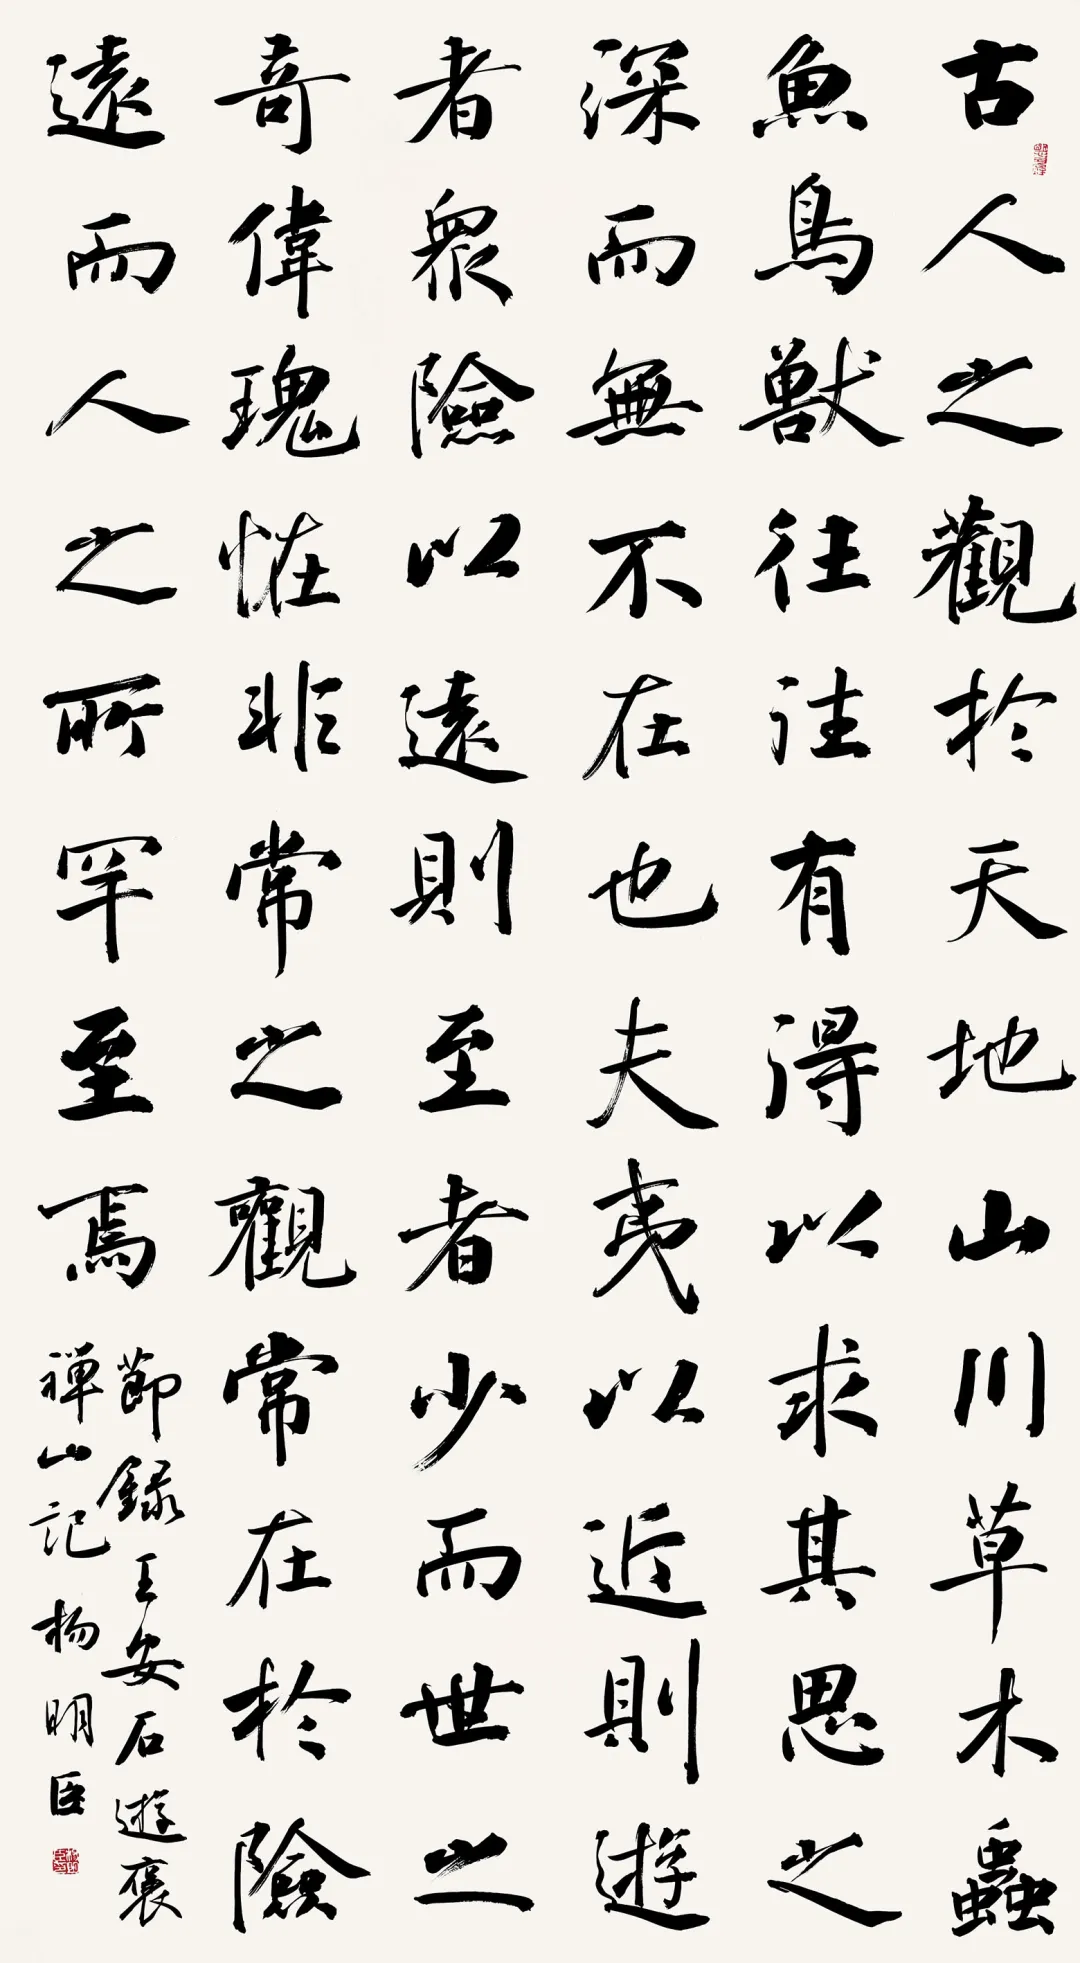 古人之觀於天地山川草木蟲
魚鳥獸往往有得以求其思之
深而無不在也夫夷以近則遊
者眾險以遠則至者少而世之
奇偉瑰怪非常之觀常在於險
遠而人之所罕至焉
節錄王安石遊褒
禪山記 楊明臣